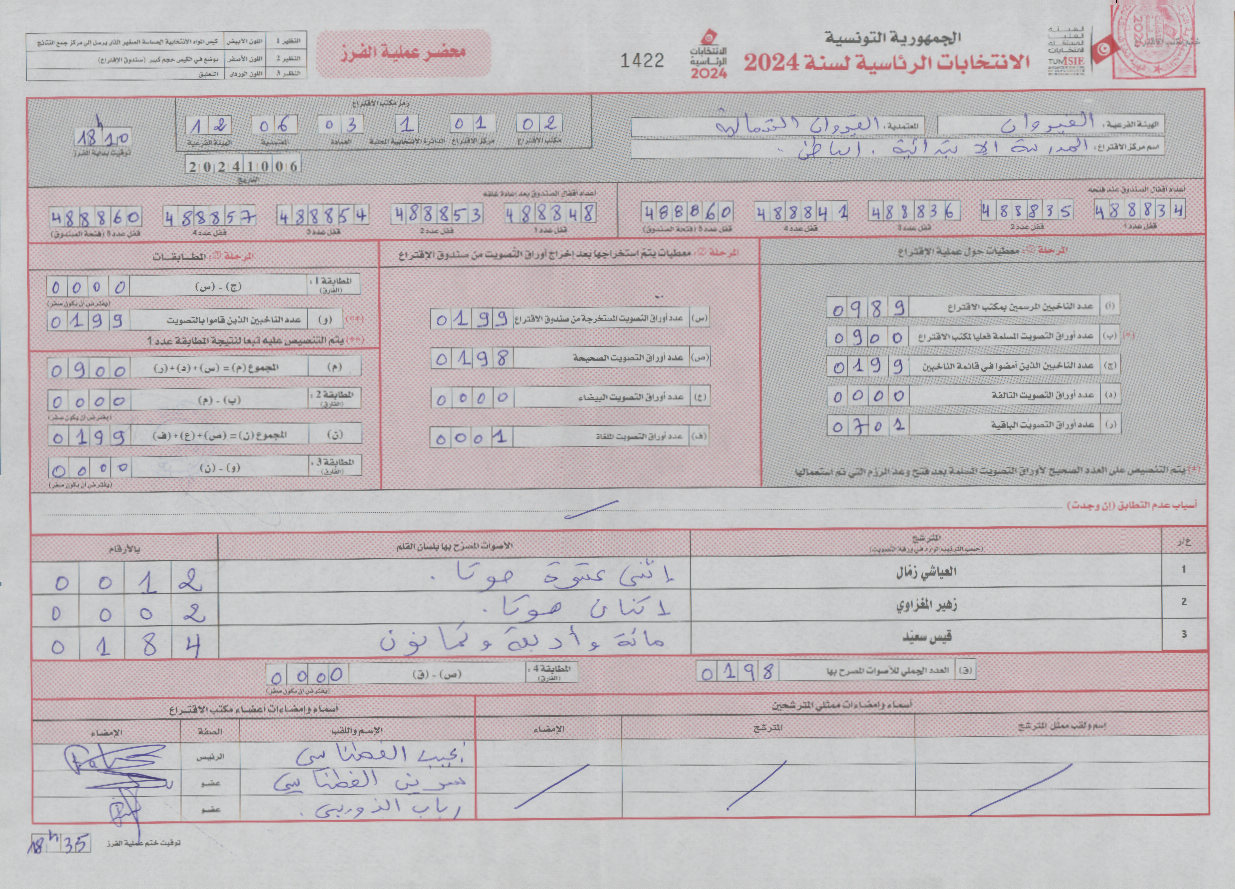 الجمهورية التونسية
الانتخابات الرئاسية لسنة 2024
الهيئة العليا المستقلة للانتخابات
TUNISIE
الانتخابات الرئاسية 2024
1422
محضر عملية الفرز
النظير 1 اللون الأبيض كيس المواد الانتخابية الحساسة الصغير الذي يرسل الى مركز جمع النتائج
النظير 2 اللون الأصفر يوضع في الكيس حجم كبير (صندوق الاقتراع)
النظير 3 اللون الوردي التعليق
الهيئة الفرعية: القيروان
المعتمدية: القيروان الشمالية
اسم مركز الاقتراع: المدرسة الابتدائية
رمز مكتب الاقتراع
02 01 1 03 06 12
مكتب الاقتراع مركز الاقتراع الدائرة الانتخابية المحلية العمادة المعتمدية الهيئة الفرعية
20241006
التاريخ
18h10
توقيت بداية الفرز
أعداد أقفال الصندوق عند فتحه
488834 488835 488836 488841 488860
قفل عدد 1 قفل عدد 2 قفل عدد 3 قفل عدد 4 قفل عدد 5 (فتحة الصندوق)
أعداد أقفال الصندوق بعد إعادة غلقه
488848 488853 488854 488857 488860
قفل عدد 1 قفل عدد 2 قفل عدد 3 قفل عدد 4 قفل عدد 5 (فتحة الصندوق)
المرحلة ①: معطيات حول عملية الاقتراع
(أ) عدد الناخبين المرسمين بمكتب الاقتراع 0989
(*) (ب) عدد أوراق التصويت المسلمة فعليا لمكتب الاقتراع 0900
(ج) عدد الناخبين الذين أمضوا في قائمة الناخبين 0199
(د) عدد أوراق التصويت التالفة 0000
(ر) عدد أوراق التصويت الباقية 0701
(*) يتم التنصيص على العدد الصحيح لأوراق التصويت المسلمة بعد فتح وعد الرزم التي تم استعمالها
المرحلة ②: معطيات يتم استخراجها بعد إخراج أوراق التصويت من صندوق الاقتراع
(س) عدد أوراق التصويت المستخرجة من صندوق الاقتراع 0199
(ص) عدد أوراق التصويت الصحيحة 0198
(ع) عدد أوراق التصويت البيضاء 0000
(ف) عدد أوراق التصويت الملغاة 0001
المرحلة ③: المطابقات
المطابقة 1: (الفارق) (ج) - (س) 0000
(يفترض أن يكون صفر)
(**) (و) عدد الناخبين الذين قاموا بالتصويت 0199
(**) يتم التنصيص عليه تبعا لنتيجة المطابقة عدد 1
(م) المجموع (م) = (س) + (د) + (ر) 0900
المطابقة 2: (الفارق) (ب) - (م) 0000
(يفترض أن يكون صفر)
(ن) المجموع (ن) = (ص) + (ع) + (ف) 0199
المطابقة 3: (الفارق) (و) - (ن) 0000
(يفترض أن يكون صفر)
أسباب عدم التطابق (إن وجدت)
ع/ر المترشح (حسب الترتيب الوارد في ورقة التصويت) الأصوات المصرّح بها بلسان القلم بالأرقام
1 العياشي زمّال إثنى عشرة صوتا. 0012
2 زهير المغزاوي اثنان صوتا. 0002
3 قيس سعيّد مائة وأربعة وثمانون 0184
(ق) العدد الجملي للأصوات المصرح بها 0198
المطابقة 4: (الفارق) (ص) - (ق) 0000
(يفترض أن يكون صفر)
أسماء وإمضاءات ممثلي المترشحين
إسم ولقب ممثل المترشح المترشح الإمضاء
أسماء وإمضاءات أعضاء مكتب الاقتراع
الإسم واللقب الصفة الإمضاء
نجيب الغطاسي الرئيس
الغطاسي عضو
رباب عضو
توقيت ختم عملية الفرز 18h35